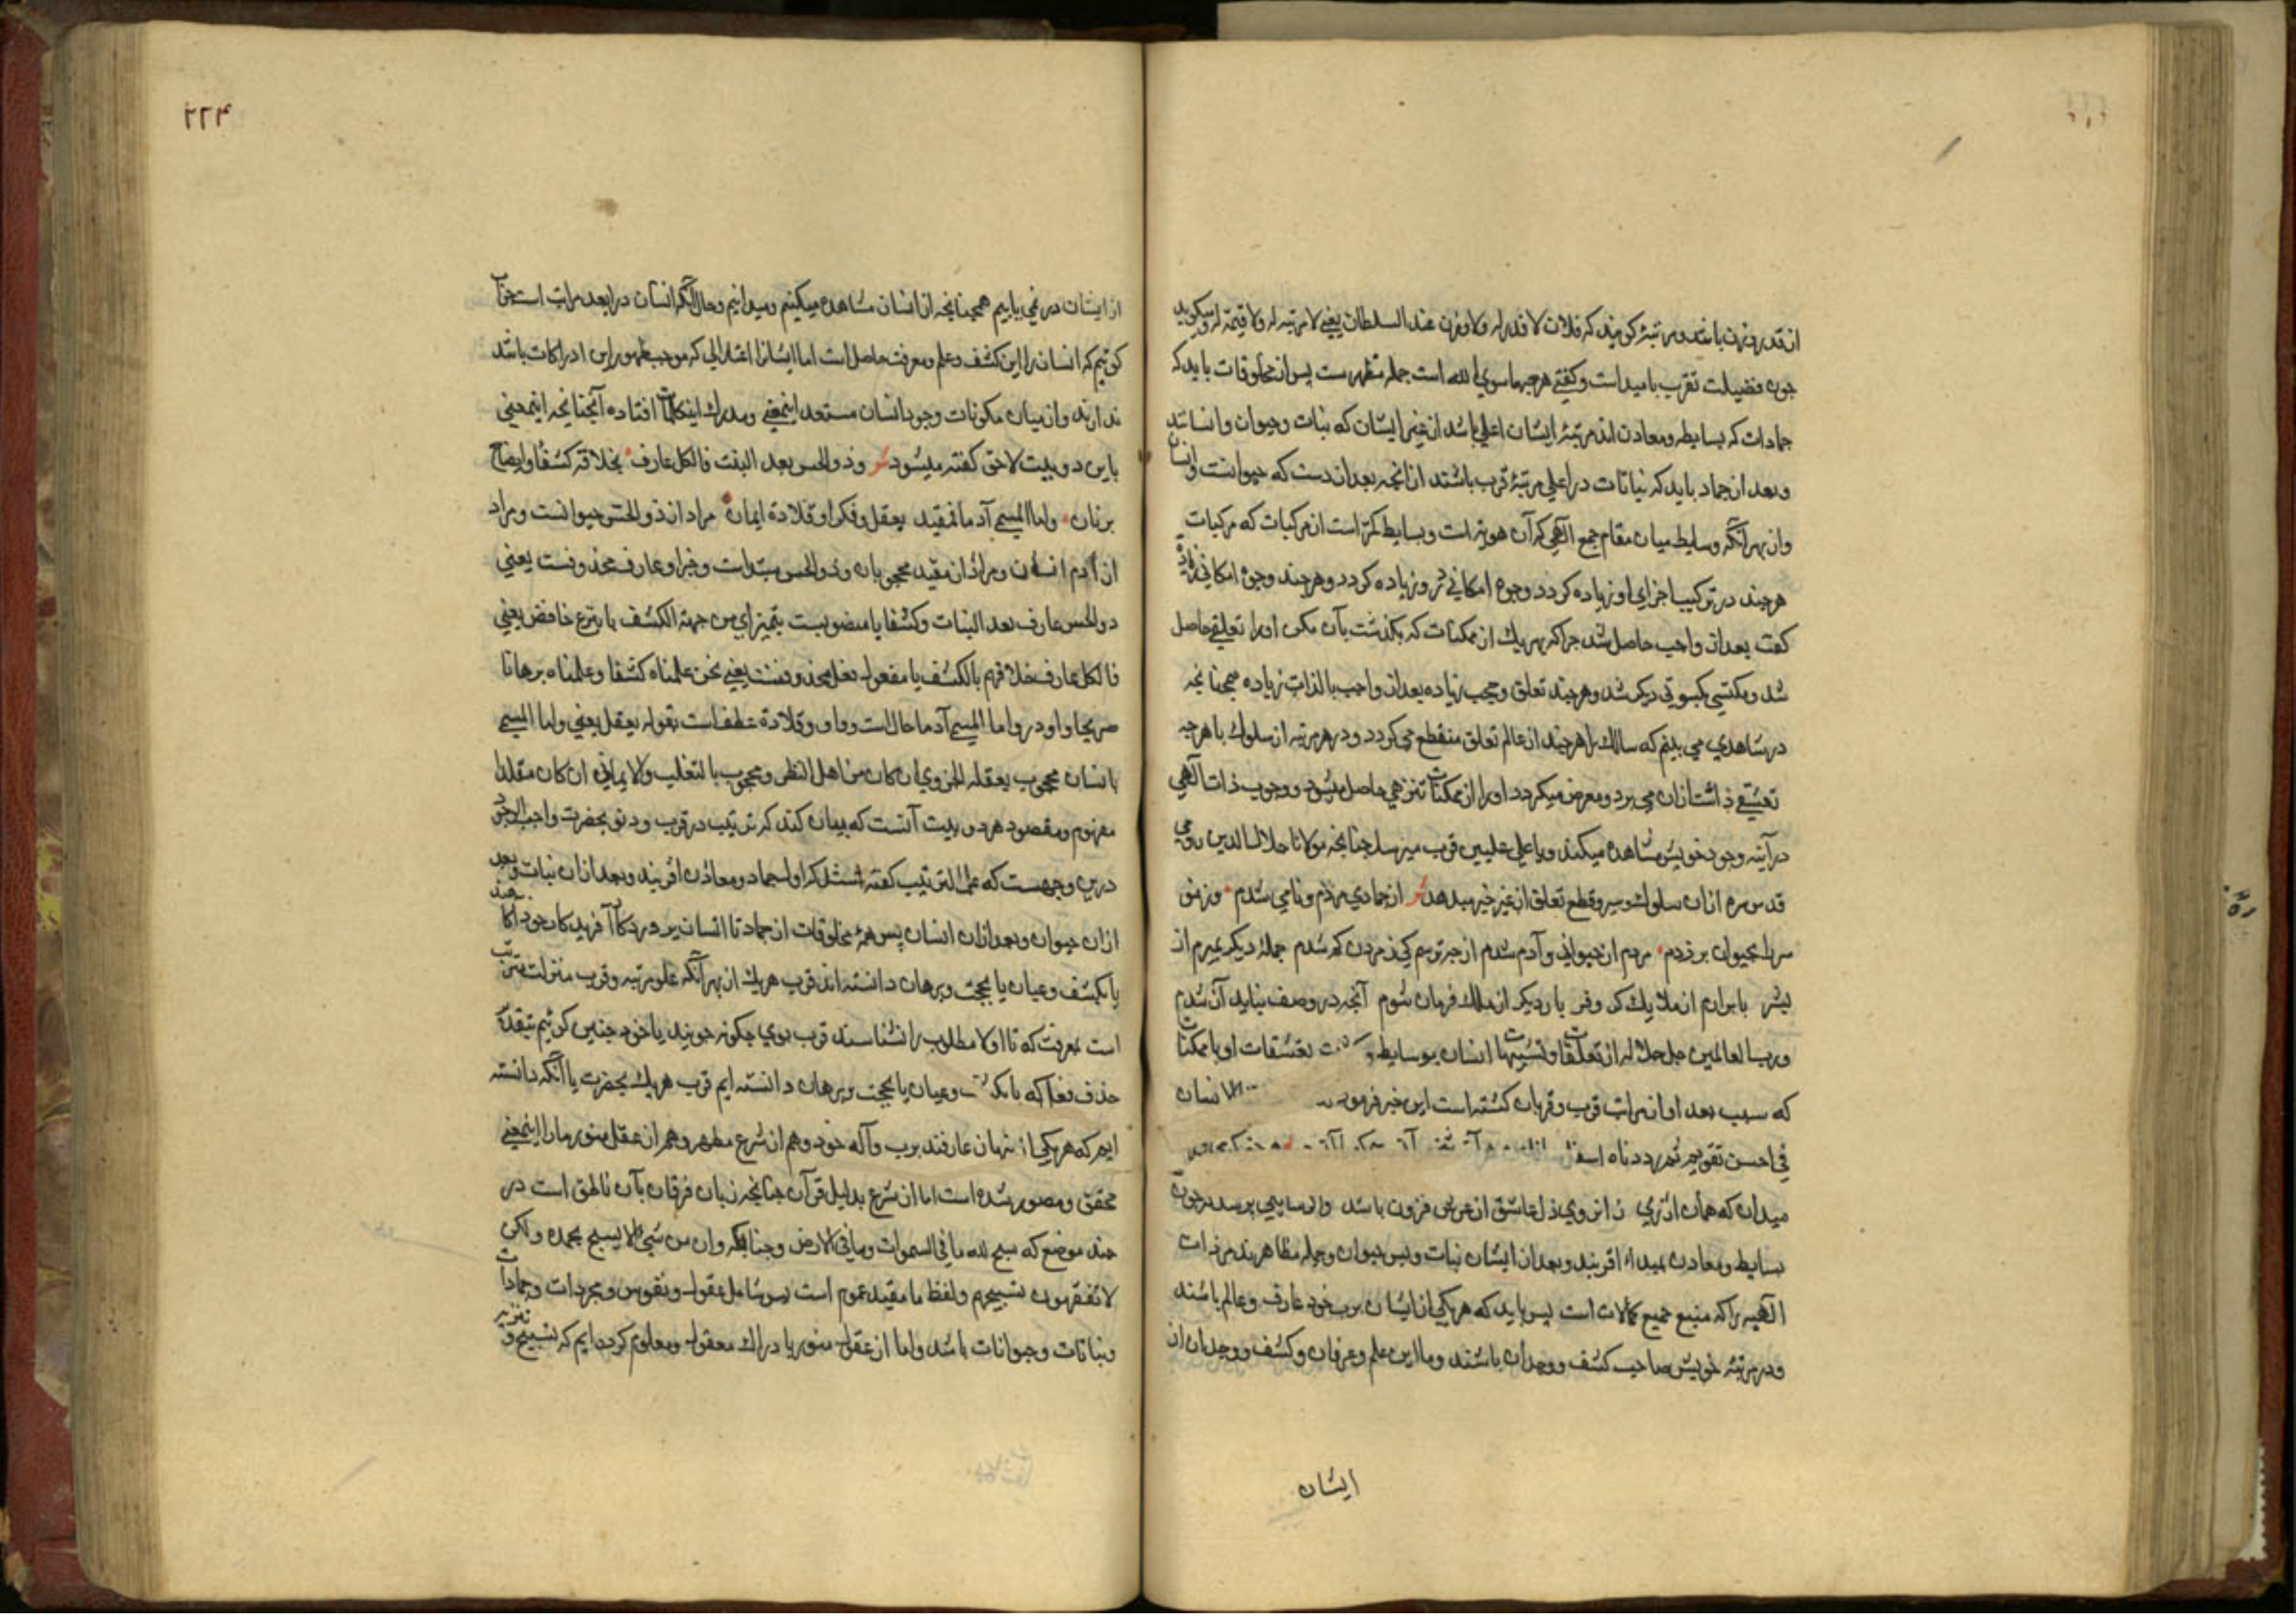 از قدر وزن باشد و مرتبۀ کویند که فلان لا قدر له ولا وزن عند السلطان یعنی لا مرتبه له ولا قیمة له و میکوید
جون فضیلت تقرب بامبداست و کفتی هرجه ماسوی الله است جمله مظهرست پس از مخلوقات باید که
جمادات که بسایط و معادن اند مرتبۀ ایشان اعلی باشد از غیر ایشان که نبات وحیوان وانسانند
وبعد از جماد باید که نباتات در اعلی مرتبۀ قرب باشند از انجه بعد از دست که حیوانست وانسان
واز بهر آنکه وسایط میان مقام جمع الهی که آن هویتست وبسایط کمتر است از مرکبات که مرکبات
هرجند در ترکیب اجزای او زیاده کردد وجوه امکانی درو زیاده کردد وهرجند وجوه امکانی زیاده
کفت بعد از واجب حاصل شد جرا که بهر یک از ممکنات که بکذشت بآن مکن اورا تعلیقی حاصل
شد ومکتسی بکسوتی دیکر شد وهرجند تعلق وحجب زیاده بعد از واجب بالذات زیاده همجنانجه
در شاهدی می بینم که سالک را هرجند از عالم تعلق منقطع می کردد ودر هر مرتبه از سلوک با هرجه
تعشقی داشت ازان می برد ومعرض میکردد اورا از ممکنات تنزهی حاصل میشود ووجوب ذات الهی
در آینه وجود خویش مشاهده میکند وبا علی علیین قرب میرسد جنانجه مولانا جلال الدین رومی
قدس سره ازان سلوک وسیر وقطع تعلق از غیر خبر میدهد شر از جمادی مردم ونامی شدم وزنمو
مردم بحیوان بر زدم مردم از حیوانی وآدم شدم از جه ترسم کی ز مردن کم شدم جملۀ دیکر بمیرم از
بشر بابرارم از ملایک کر وفر بار دیکر از ملک قربان شوم آنجه در وصف بناید آن شدم
ورب العالمین جل جلاله از تعلقات وتشبهات انسان بوسایط و تعشقات او باممکنات
که سبب بعد او از مراتب قرب وقربان کشته است این خبر فرمود الانسان
فی احسن تقویم ثم رددناه اسفل
میدان که همان از تری زانروی دل عاشق از عرش فزون باشد واکر سایلی پرسد که جون
بسایط ومعادن بمبداء اقربند وبعد از ایشان نبات وپس حیوان وجمله مظاهرند مر ذات
الهیه را که منبع جمیع کمالات است پس باید که هریکی از ایشان برب خود عارف وعالم باشند
ودر مرتبۀ خویش صاحب کشف ووجدان باشند وما این علم وعرفان وکشف ووجدان از
ایشان
۲۲۴
از ایشان در نمی یابیم همجنانجه از انسان مشاهده میکنیم ومیدانیم وحال آنکه انسان در ابعد مراتب است جواب
کوییم که انسان را این کشف وعلم ومعرفت حاصل است اما ایشانرا اعتدالی که موجب ظهور این ادراکات باشد
ندارند واز میان مکونات وجود انسان مستعد اینمعنی ومدرک این کلمات افتاده آنجنانجه اینمعنی
باین دو بیت لاحق کفته میشود شر وذو الحس بعد النبت فالکل عارف بخلاقه کشفا وایضاح
برهان واما المسمی آدما فمقید بعقل وفکر او قلادة ایمان مراد از ذو الحس حیوانست ومراد
از آدم انسان ومراد از مقید محجوبان وذو الحس مبتداست وخبر او عارف محذوفست یعنی
ذو الحس عارف بعد النبات وکشفا یا منصوبست بتمیز ای من جهة الکشف یا بنزع خافض یعنی
فالکل عارف بخلاقهم بالکشف یا مفعول فعل محذوفست یعنی نحن علمناه کشفا وعلمناه برهانا
صریحا واو در واما المسمی آدما حال است وواو وقلادة عطف است بقوله بعقل یعنی واما المسمی
بانسان محجوب بعقله الجزوی ان کان من اهل النظر ومحجوب بالتقلید والایمانی ان کان مقلدا
مفهوم ومقصود هر دو بیت آنست که بیان کند که ترتیب در قرب ودنو بحضرت واجب الوجود
درین وجهست که علی الترتیب کفته شد که اول جماد ومعادن اقربند وبعد ازان نبات وبعد
ازان حیوان وبعد ازان انسان پس همۀ مخلوقات از جماد تا انسان بر درد کار آفریدکار خود آکاهند
یا بکشف وعیان یا بحجت وبرهان دانسته اند قرب هریک از بهر آنکه علو مرتبه وقرب منزلت مترتب
است بمعرفت که تا اولا مطلوب را نشناسند قرب بوی جکونه جویند یا خود جنین کوییم بتقدیر
حذف فعل که بکشف وعیان یا بحجت وبرهان دانسته ایم قرب هریک بحضرت یا آنکه دانسته
ایم که هریکی از نهان عارفند برب واله خود وهم از شرع مطهر وهم از عقل منور مارا اینمعنی
محقق ومصور شده است اما از شرع بدلیل قرآن جنانجه زبان فرقان بآن ناطق است در
جند موضع که سبح لله ما فی السموات وما فی الارض وجنانکه وان من شیء الا یسبح بحمده ولکن
لا تفقهون تسبیحهم ولفظ ما مفید عموم است پس شامل عقول ونفوس ومجردات وجمادات
ونباتات وحیوانات باشد واما از عقول منور با دراک معقول ومعلوم کرده ایم که تسبیح وتنزیه